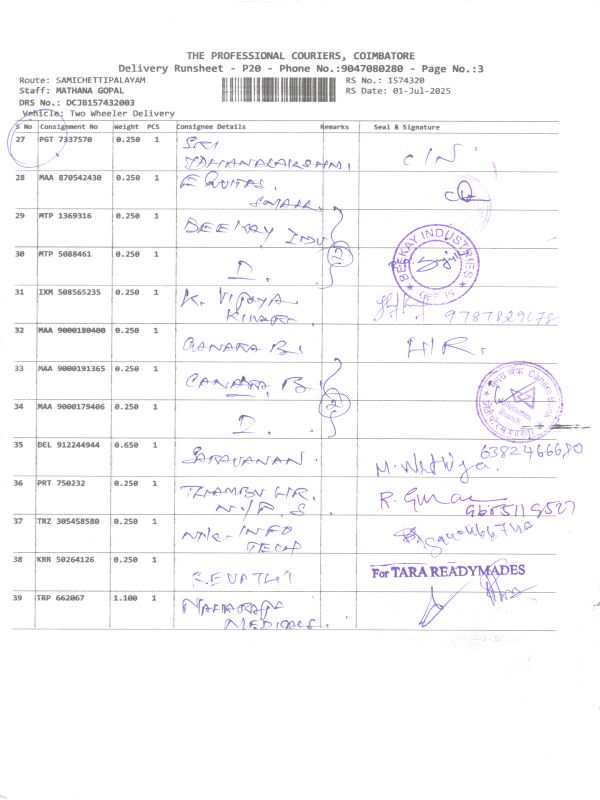 THE PROFESSIONAL COURIERS, COIMBATORE
Delivery Runsheet - P20 - Phone No.:9047080280 - Page No.:3
Route: SAMICHETTIPALAYAM RS No.: 1574320
Staff: MATHANA GOPAL RS Date: 01-Jul-2025
DRS No.: DCJB157432003
Vehicle: Two Wheeler Delivery
S No Consignment No Weight PCS Consignee Details Remarks Seal & Signature
27 PGT 7337570 0.250 1 SRI
28 MAA 870542430 0.250 1 EQUITAS.
29 MTP 1369316 0.250 1 BEEKAY INDU
BEEKAY INDUSTRIES
30 MTP 5088461 0.250 1 D. 2
31 IXM 508565235 0.250 1 K. VIJAYA
KUMAR
32 MAA 9000180400 0.250 1 CANARA B. H/R.
33 MAA 9000191365 0.250 1 CANARA B.
Canara Bank
Branch
34 MAA 9000179406 0.250 1 D. 2
35 DEL 912244944 0.650 1 SARAVANAN. 6382466680
36 PRT 750232 0.250 1 THAMBU HR.
N.I.P.S
37 TRZ 305458580 0.250 1 INFO
TECH
38 KRR 50264126 0.250 1 REVATHI
For TARA READYMADES
39 TRP 662067 1.100 1 NATARAJ
MEDICALS.